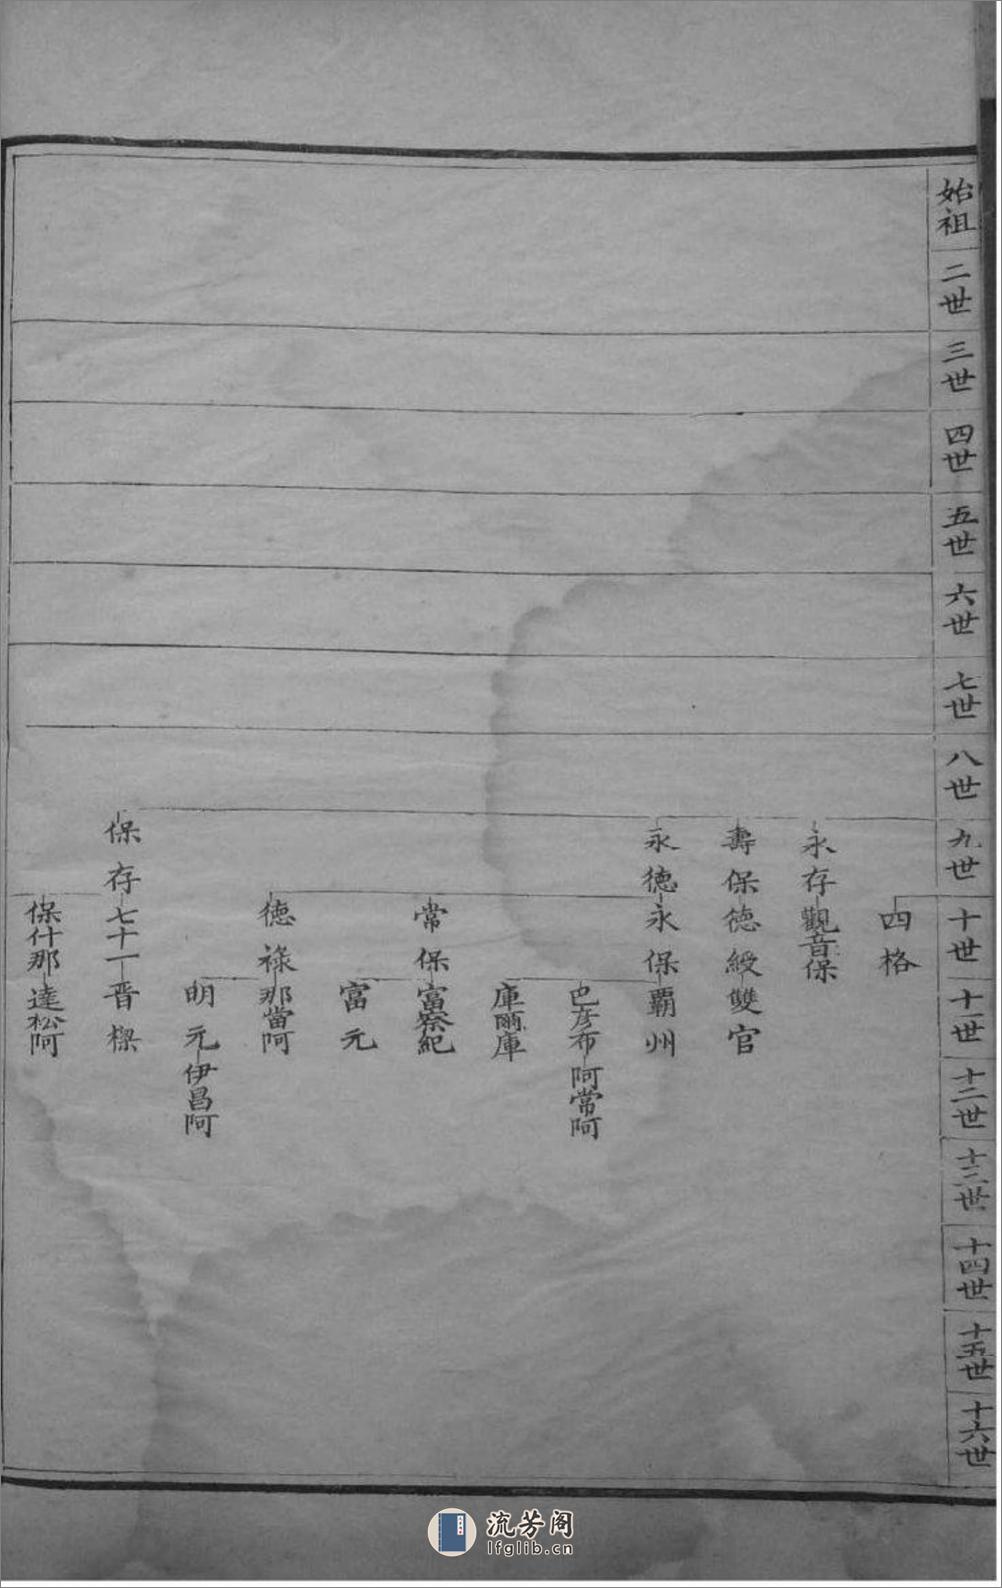 始祖
二世
三世
四世
五世
六世
七世
八世
九世
十世
十一世
十二世
十三世
十四世
十五世
十六世
四格
永存 觀音保
壽保 德綬 雙官
永德 永保 覇州
巴彥布 阿常阿
庫爾庫
常保 富察紀
富元
德祿 那當阿
明元 伊昌阿
保存 七十一 晋樑
保什那 達松阿
流芳阁
lfglib.cn